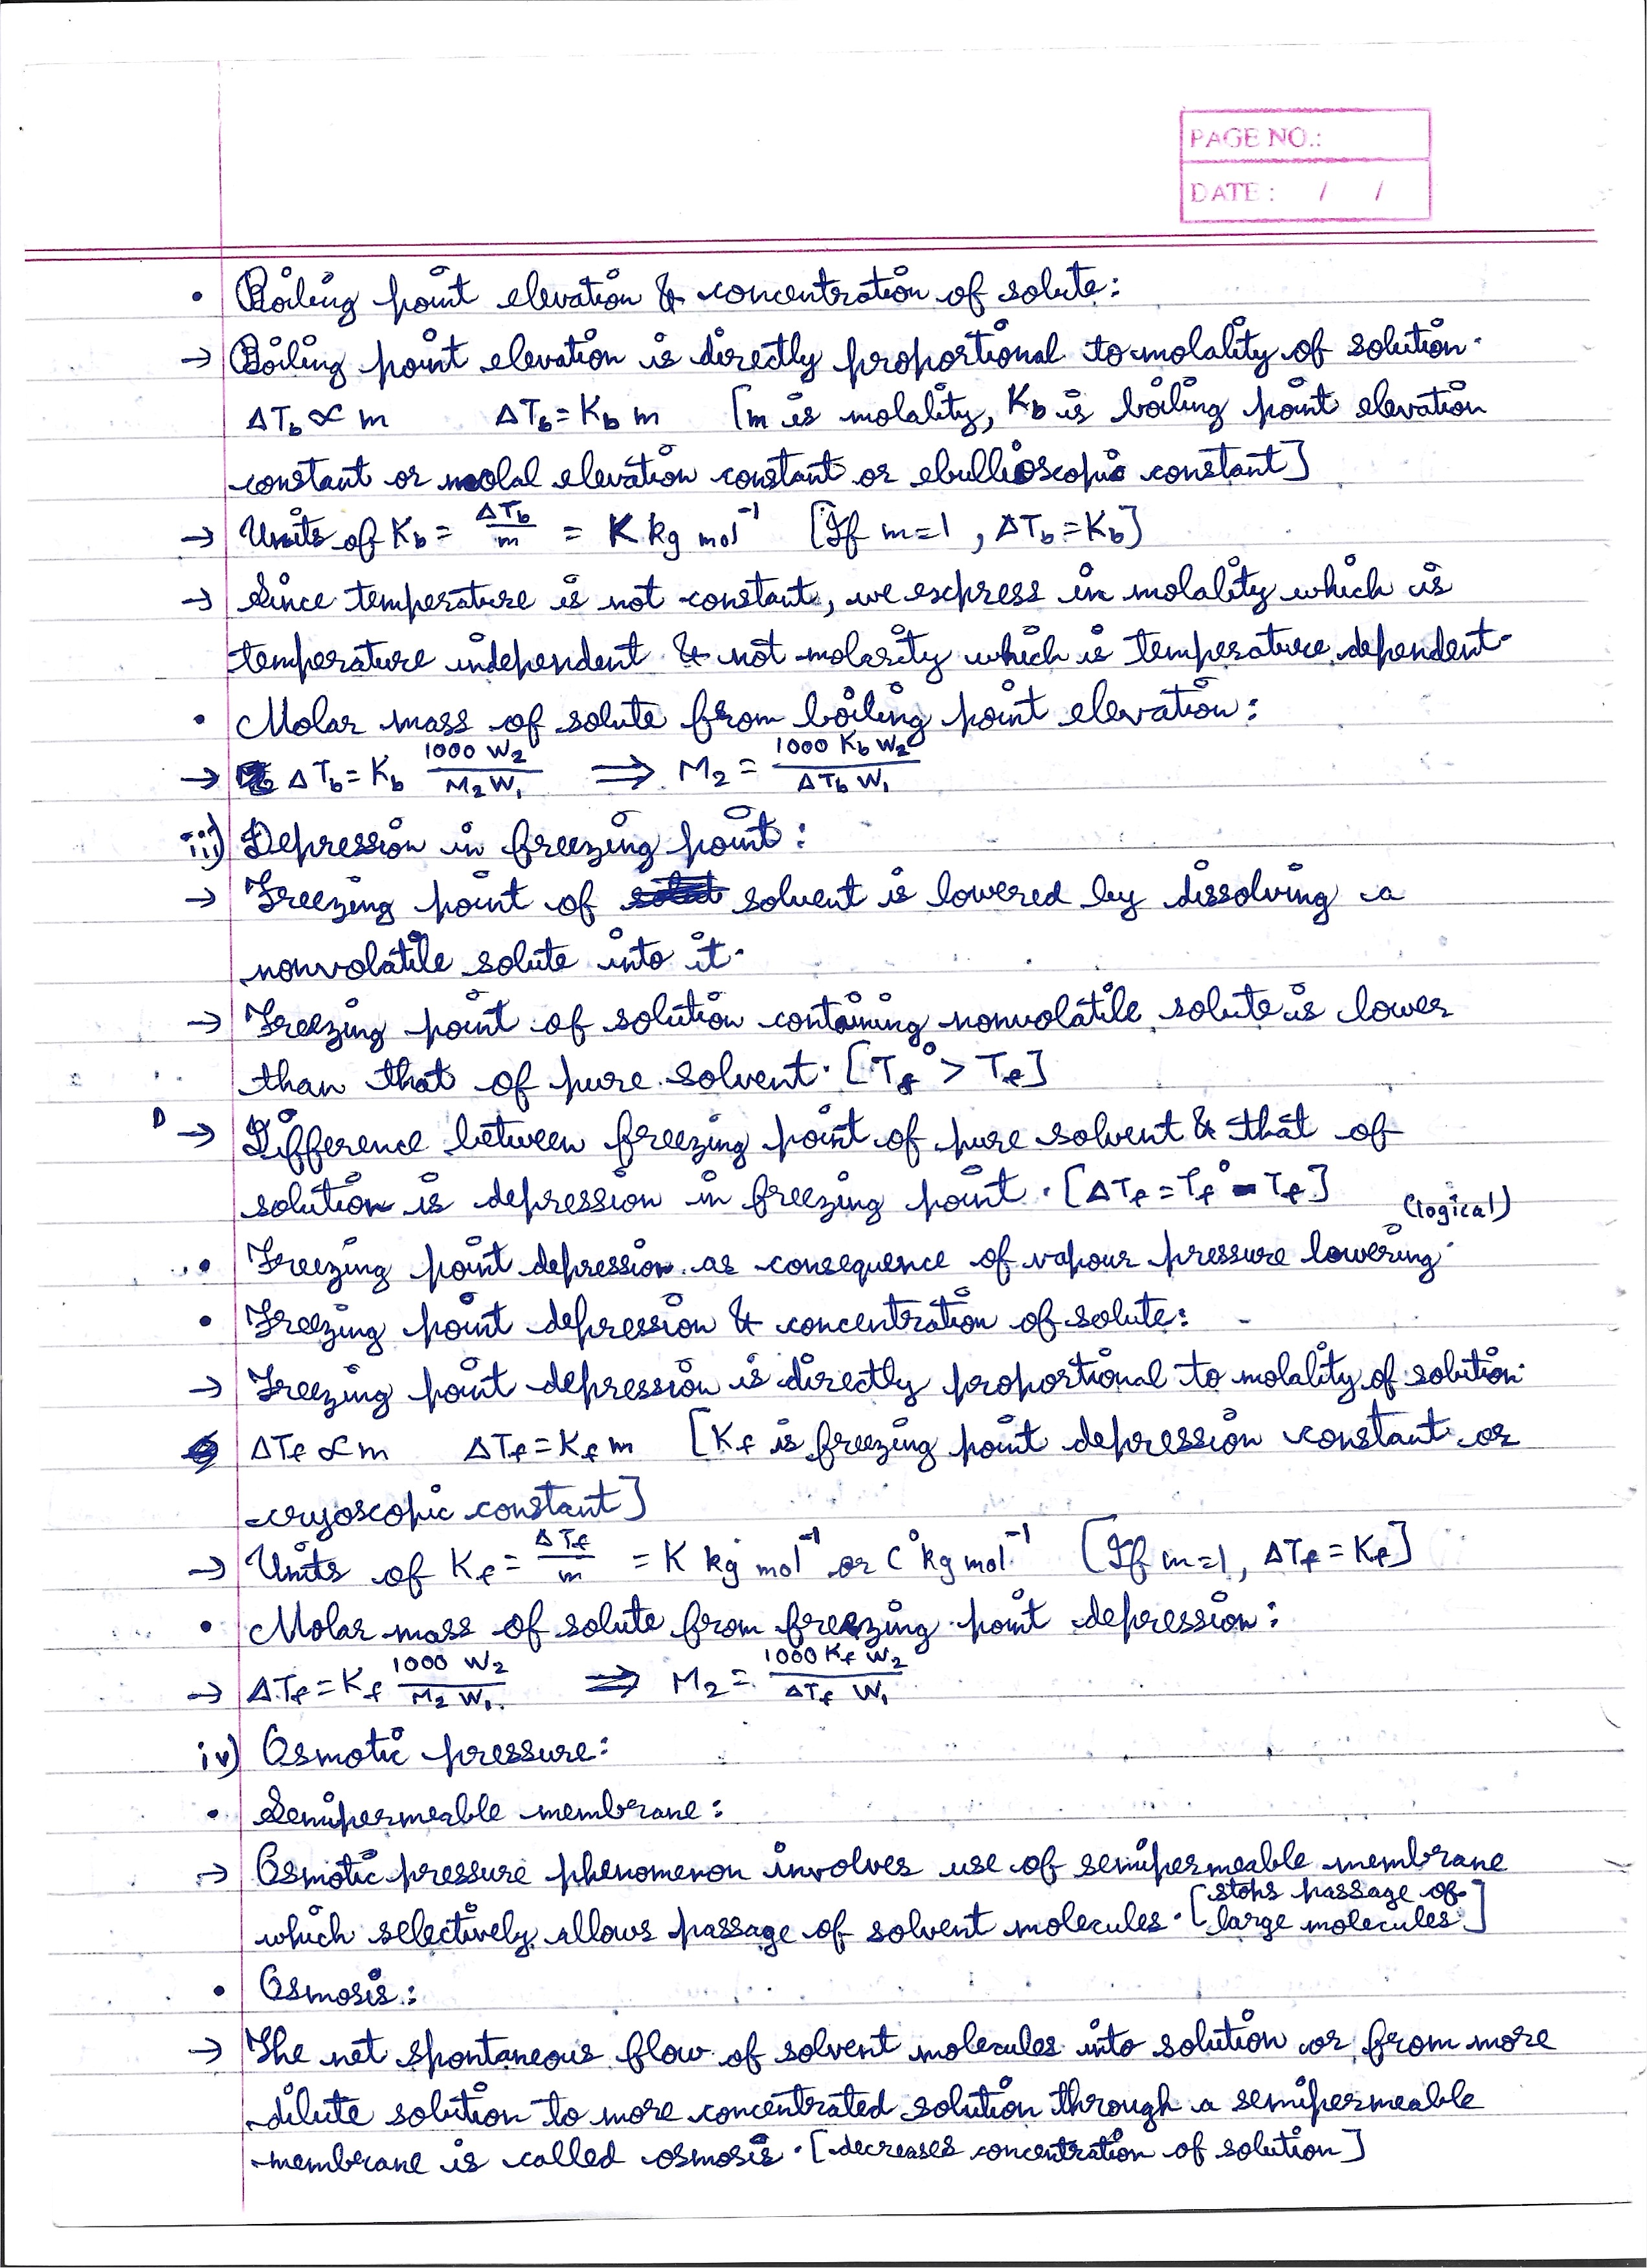 PAGE NO.:
DATE : / /
• Boiling point elevation & concentration of solute:
→ Boiling point elevation is directly proportional to molality of solution.
ΔT_b ∝ m ΔT_b = K_b m [m is molality, K_b is boiling point elevation
constant or molal elevation constant or ebullioscopic constant]
→ Units of K_b = ΔT_b/m = K kg mol⁻¹ [If m=1, ΔT_b = K_b]
→ Since temperature is not constant, we express in molality which is
temperature independent & not molarity which is temperature dependent.
• Molar mass of solute from boiling point elevation:
→ ΔT_b = K_b 1000 W₂/M₂ W₁ ⇒ M₂ = 1000 K_b W₂/ΔT_b W₁
iii) Depression in freezing point:
→ Freezing point of solvent is lowered by dissolving a
nonvolatile solute into it.
→ Freezing point of solution containing nonvolatile solute is lower
than that of pure solvent. [T_f° > T_f]
→ Difference between freezing point of pure solvent & that of
solution is depression in freezing point. [ΔT_f = T_f° - T_f]
(logical)
• Freezing point depression as consequence of vapour pressure lowering.
• Freezing point depression & concentration of solute:
→ Freezing point depression is directly proportional to molality of solution.
ΔT_f ∝ m ΔT_f = K_f m [K_f is freezing point depression constant or
cryoscopic constant]
→ Units of K_f = ΔT_f/m = K kg mol⁻¹ or C° kg mol⁻¹ [If m=1, ΔT_f = K_f]
• Molar mass of solute from freezing point depression:
→ ΔT_f = K_f 1000 W₂/M₂ W₁ ⇒ M₂ = 1000 K_f W₂/ΔT_f W₁
iv) Osmotic pressure:
• Semipermeable membrane:
→ Osmotic pressure phenomenon involves use of semipermeable membrane
which selectively allows passage of solvent molecules. [stops passage of
large molecules.]
• Osmosis:
→ The net spontaneous flow of solvent molecules into solution or from more
dilute solution to more concentrated solution through a semipermeable
membrane is called osmosis. [decreases concentration of solution]